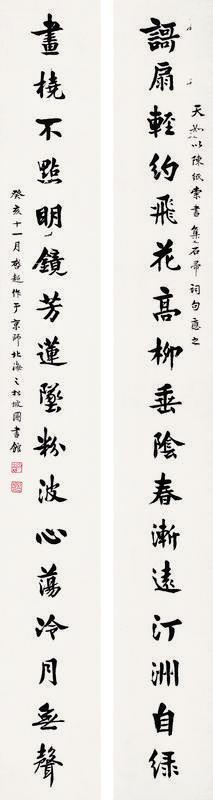 天如以陳紙索書集石帚詞句應之
謌扇輕約飛花高柳垂陰春漸遠汀洲自綠
畫橈不點明鏡芳蓮墜粉波心蕩冷月無聲
癸亥十一月啓超作于京師北海之松坡圖書館